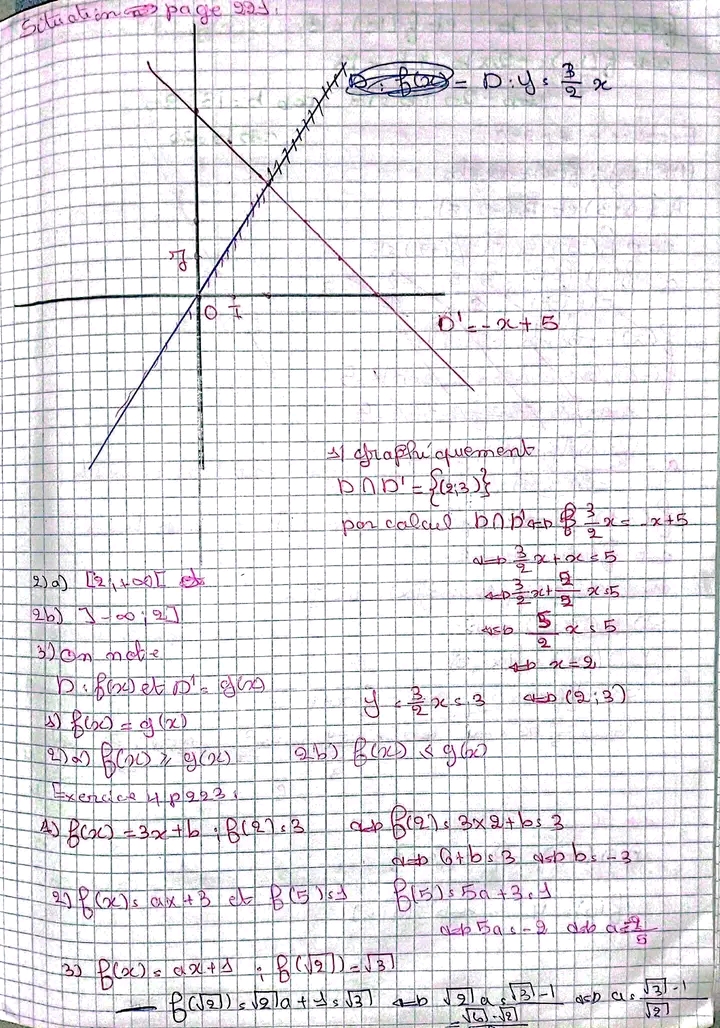 Situation => page 221.
D : f(x) = D : y = 3/2 x
J
O I
D' = -x + 5
1) graphiquement
D ∩ D' = {(2;3)}
par calcul D ∩ D' <=> 3/2 x = -x+5
<=> 3/2 x + x = 5
<=> 3/2 x + 2/2 x = 5
<=> 5/2 x = 5
<=> x = 2
y = 3/2 x = 3 <=> (2;3)
2)a) [2,+∞[
2b) ]-∞;2]
3) On note
D : f(x) et D' = g(x)
1) f(x) = g(x)
2)a) f(x) ≥ g(x) 2b) f(x) ≤ g(x)
Exercice 4 p223.
1) f(x) = 3x+b ; f(2) = 3 <=> f(2) = 3×2+b = 3
<=> 6+b = 3 <=> b = -3
2) f(x) = ax+3 et f(5) = 1 f(5) = 5a+3 = 1
<=> 5a = -2 <=> a = -2/5
3) f(x) = ax+1 ; f(√2) = √3
f(√2) = √2 a + 1 = √3 <=> √2 a = √3 - 1 <=> a = (√3 - 1)/√2
= √6 - √2